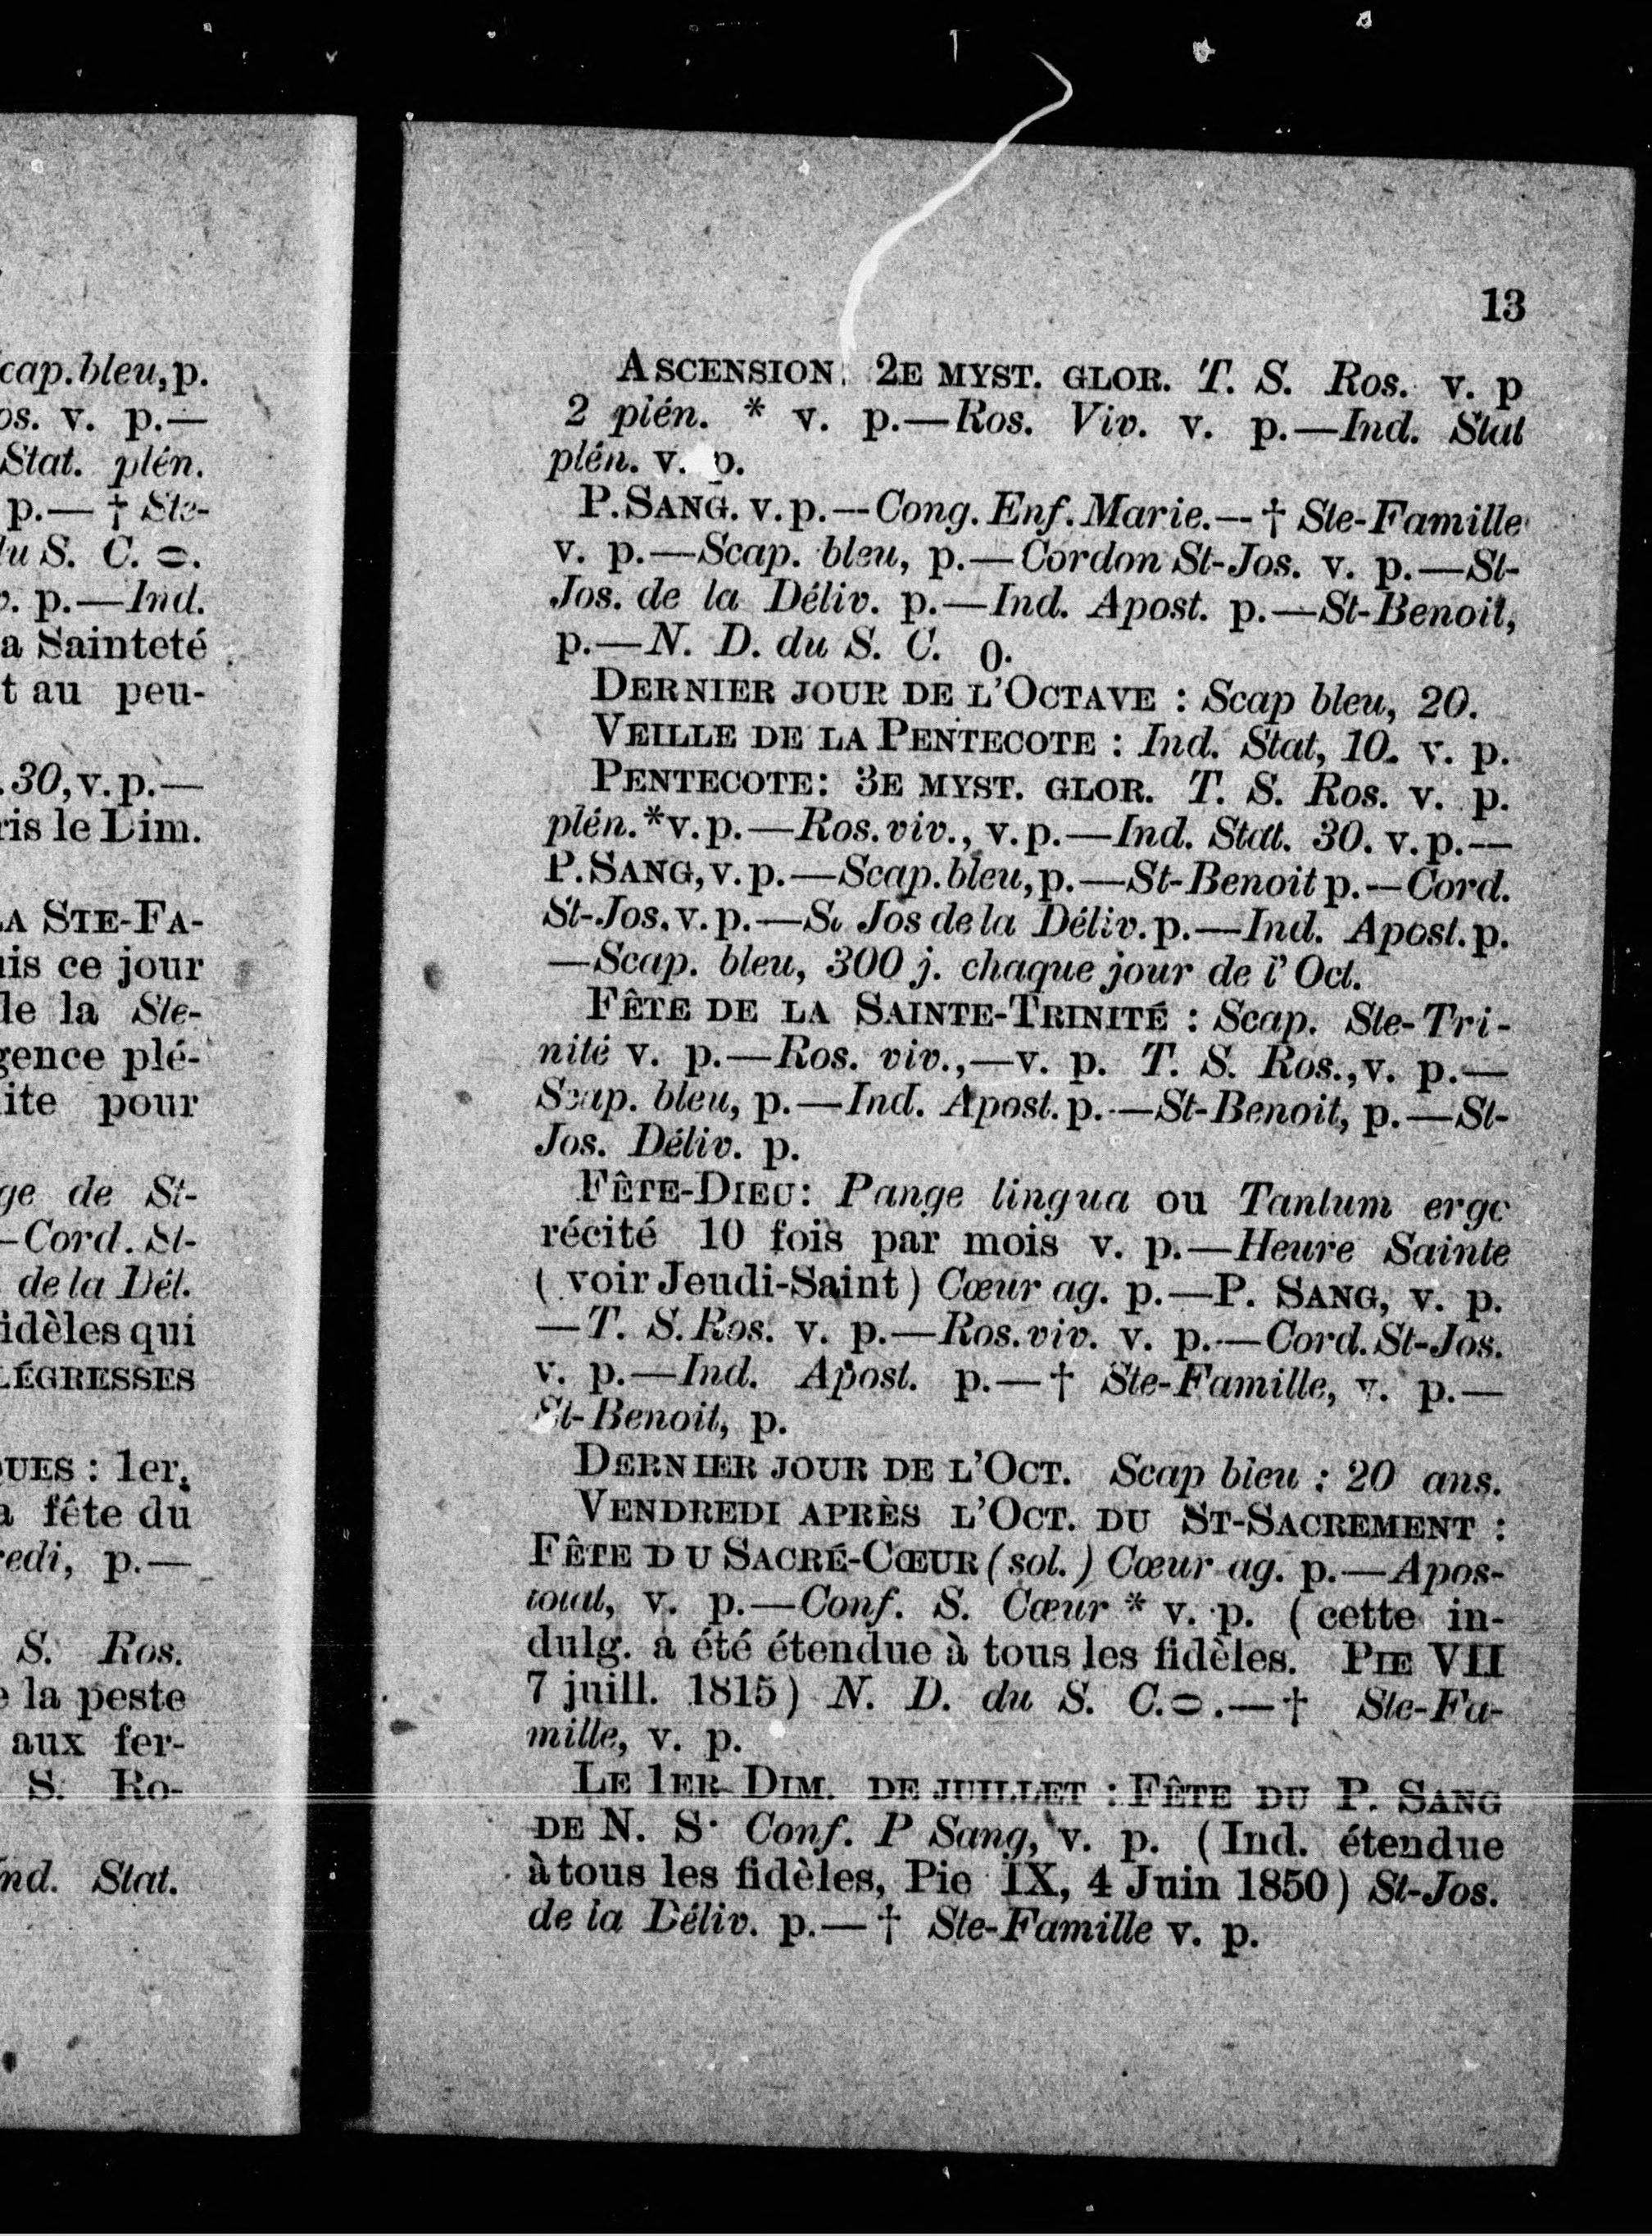 cap.bleu,p.
os. v. p.—
Stat. plén.
p.— † Ste-
du S. C. ⊖.
p. p.—Ind.
a Sainteté
t au peu-
.30,v.p.—
ris le Dim.
LA STE-FA-
uis ce jour
de la Ste-
gence plé-
ite pour
ge de St-
—Cord. St-
de la Dél.
idèles qui
LÉGRESSES
QUES : 1er,
a fête du
redi, p.—
S. Ros.
e la peste
aux fer-
S. Ro-
Ind. Stat.
13
ASCENSION. 2E MYST. GLOR. T. S. Ros. v. p
2 plén. * v. p.—Ros. Viv. v. p.—Ind. Stat
plén. v. p.
P. SANG. v. p.—Cong. Enf. Marie.—† Ste-Famille
v. p.—Scap. bleu, p.—Cordon St-Jos. v. p.—St-
Jos. de la Déliv. p.—Ind. Apost. p.—St-Benoit,
p.—N. D. du S. C. 0.
DERNIER JOUR DE L'OCTAVE : Scap bleu, 20.
VEILLE DE LA PENTECOTE : Ind. Stat, 10. v. p.
PENTECOTE: 3E MYST. GLOR. T. S. Ros. v. p.
plén.*v. p.—Ros. viv., v. p.—Ind. Stat. 30. v. p.—
P. SANG, v. p.—Scap. bleu, p.—St-Benoit p.—Cord.
St-Jos. v. p.—St Jos de la Déliv. p.—Ind. Apost. p.
—Scap. bleu, 300 j. chaque jour de l'Oct.
FÊTE DE LA SAINTE-TRINITÉ : Scap. Ste-Tri-
nité v. p.—Ros. viv.,—v. p. T. S. Ros., v. p.—
Scap. bleu, p.—Ind. Apost. p.—St-Benoit, p.—St-
Jos. Déliv. p.
FÊTE-DIEU: Pange lingua ou Tantum ergo
récité 10 fois par mois v. p.—Heure Sainte
( voir Jeudi-Saint ) Cœur ag. p.—P. SANG, v. p.
—T. S. Ros. v. p.—Ros. viv. v. p.—Cord. St-Jos.
v. p.—Ind. Apost. p.—† Ste-Famille, v. p.—
St-Benoit, p.
DERNIER JOUR DE L'OCT. Scap bleu : 20 ans.
VENDREDI APRÈS L'OCT. DU ST-SACREMENT :
FÊTE DU SACRÉ-CŒUR (sol.) Cœur ag. p.—Apos-
tolat, v. p.—Conf. S. Cœur * v. p. ( cette in-
dulg. a été étendue à tous les fidèles. PIE VII
7 juill. 1815) N. D. du S. C. ⊖.—† Ste-Fa-
mille, v. p.
LE 1ER DIM. DE JUILLET : FÊTE DU P. SANG
DE N. S. Conf. P Sang, v. p. (Ind. étendue
à tous les fidèles, Pie IX, 4 Juin 1850) St-Jos.
de la Déliv. p.—† Ste-Famille v. p.